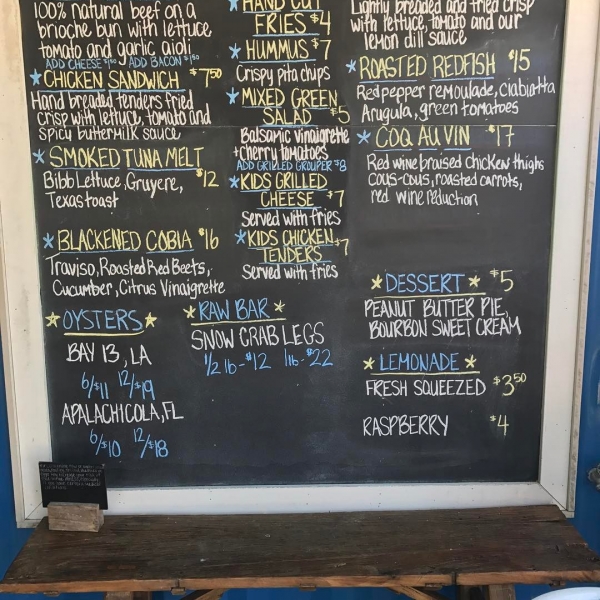 100% natural beef on a
brioche bun with lettuce
tomato and garlic aioli
ADD CHEESE $1.50 ADD BACON $1.50
CHICKEN SANDWICH $7.50
Hand breaded tenders fried
crisp with lettuce, tomato and
spicy buttermilk sauce
SMOKED TUNA MELT
Bibb Lettuce, Gruyere, $12
Texas toast
BLACKENED COBIA $16
Traviso, Roasted Red Beets,
Cucumber, Citrus Vinaigrette
OYSTERS
BAY 13, LA
6/$11 12/$19
APALACHICOLA, FL
6/$10 12/$18
HAND CUT
FRIES $4
HUMMUS $7
Crispy pita chips
MIXED GREEN
SALAD $5
Balsamic vinaigrette
+ cherry tomatoes
ADD GRILLED GROUPER $8
KIDS GRILLED
CHEESE $7
Served with fries
KIDS CHICKEN
TENDERS $7
Served with fries
RAW BAR
SNOW CRAB LEGS
1/2 lb-$12 1lb-$22
Lightly breaded and fried crisp
with lettuce tomato and our
lemon dill sauce
ROASTED REDFISH $15
Red pepper remoulade, Ciabiatta
Arugula, green tomatoes
COQ AU VIN $17
Red wine braised chicken thighs
cous-cous, roasted carrots,
red wine reduction
DESSERT $5
PEANUT BUTTER PIE,
BOURBON SWEET CREAM
LEMONADE
FRESH SQUEEZED $3.50
RASPBERRY $4